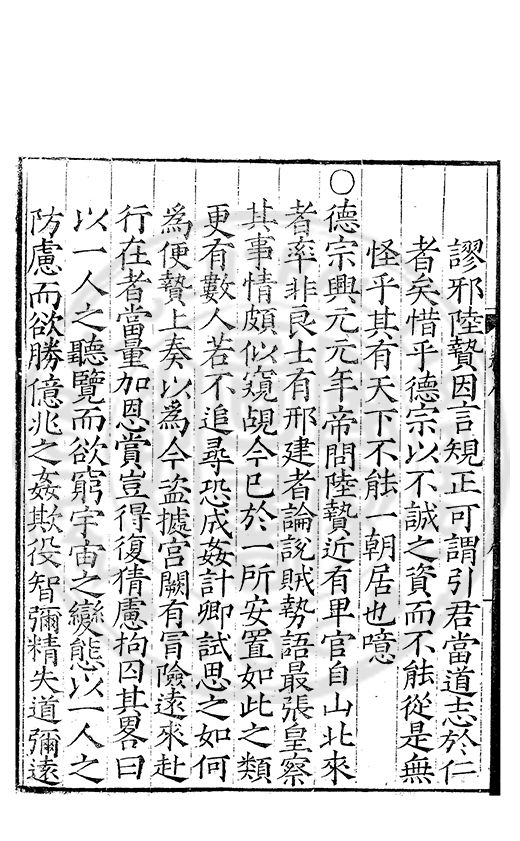 謬邪陸贄因言規正可謂引君當道志於仁
者矣惜乎德宗以不誠之資而不能從是無
怪乎其有天下不能一朝居也噫
○德宗興元元年帝問陸贄近有卑官自山北來
者率非良士有邢建者論說賊勢語最張皇察
其事情頗似窺覘今已於一所安置如此之類
更有數人若不追尋恐成姦計卿試思之如何
為便贄上奏以為今盜據宮闕有冒險遠來赴
行在者當量加恩賞豈得復猜慮拘囚其畧曰
以一人之聽覽而欲窮宇宙之變態以一人之
防慮而欲勝億兆之姦欺役智彌精失道彌遠